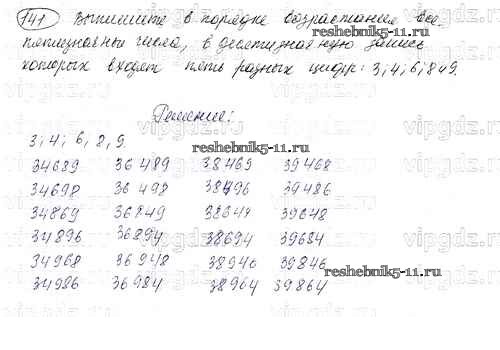 741 Выпишите в порядке возрастания все
пятизначные числа, в десятизначную запись
которых входят пять разных цифр: 3; 4; 6; 8 и 9.
reshebnik5-11.ru
Решение:
reshebnik5-11.ru
3; 4; 6, 8, 9.
34689 36489 38469 39468
34698 36498 38496 39486
34869 36849 38649 39648
34896 36894 38694 39684
34968 36948 38946 39846
reshebnik5-11.ru
34986 36984 38964 39864
reshebnik5-11.ru
vipgdz.ru vipgdz.ru vipgdz.ru